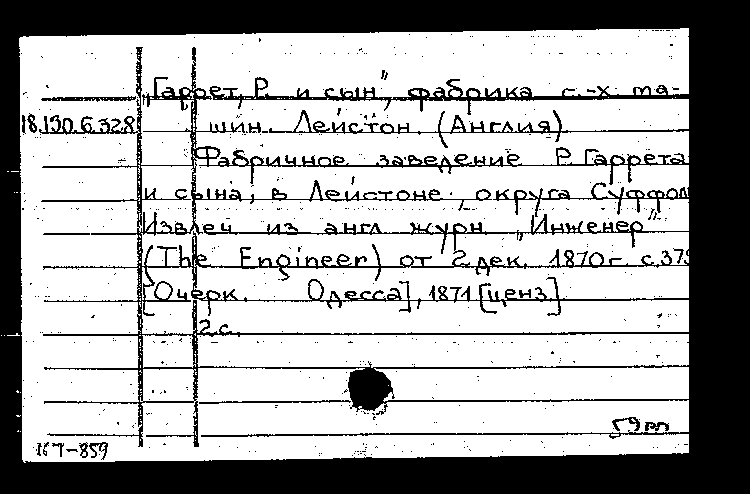 „Гаррет, Р. и сын", фабрика с.-х. ма-
18.150.6.328 шин. Лейстон. (Англия).
Фабричное заведение Р. Гаррета
и сына, в Лейстоне, округа Суффол
Извлеч. из англ. журн. „Инженер"
(The Engineer) от 2 дек. 1870 г. с. 379
[Очерк. Одесса], 1871 [ценз.]
2 с.
16 Т-859